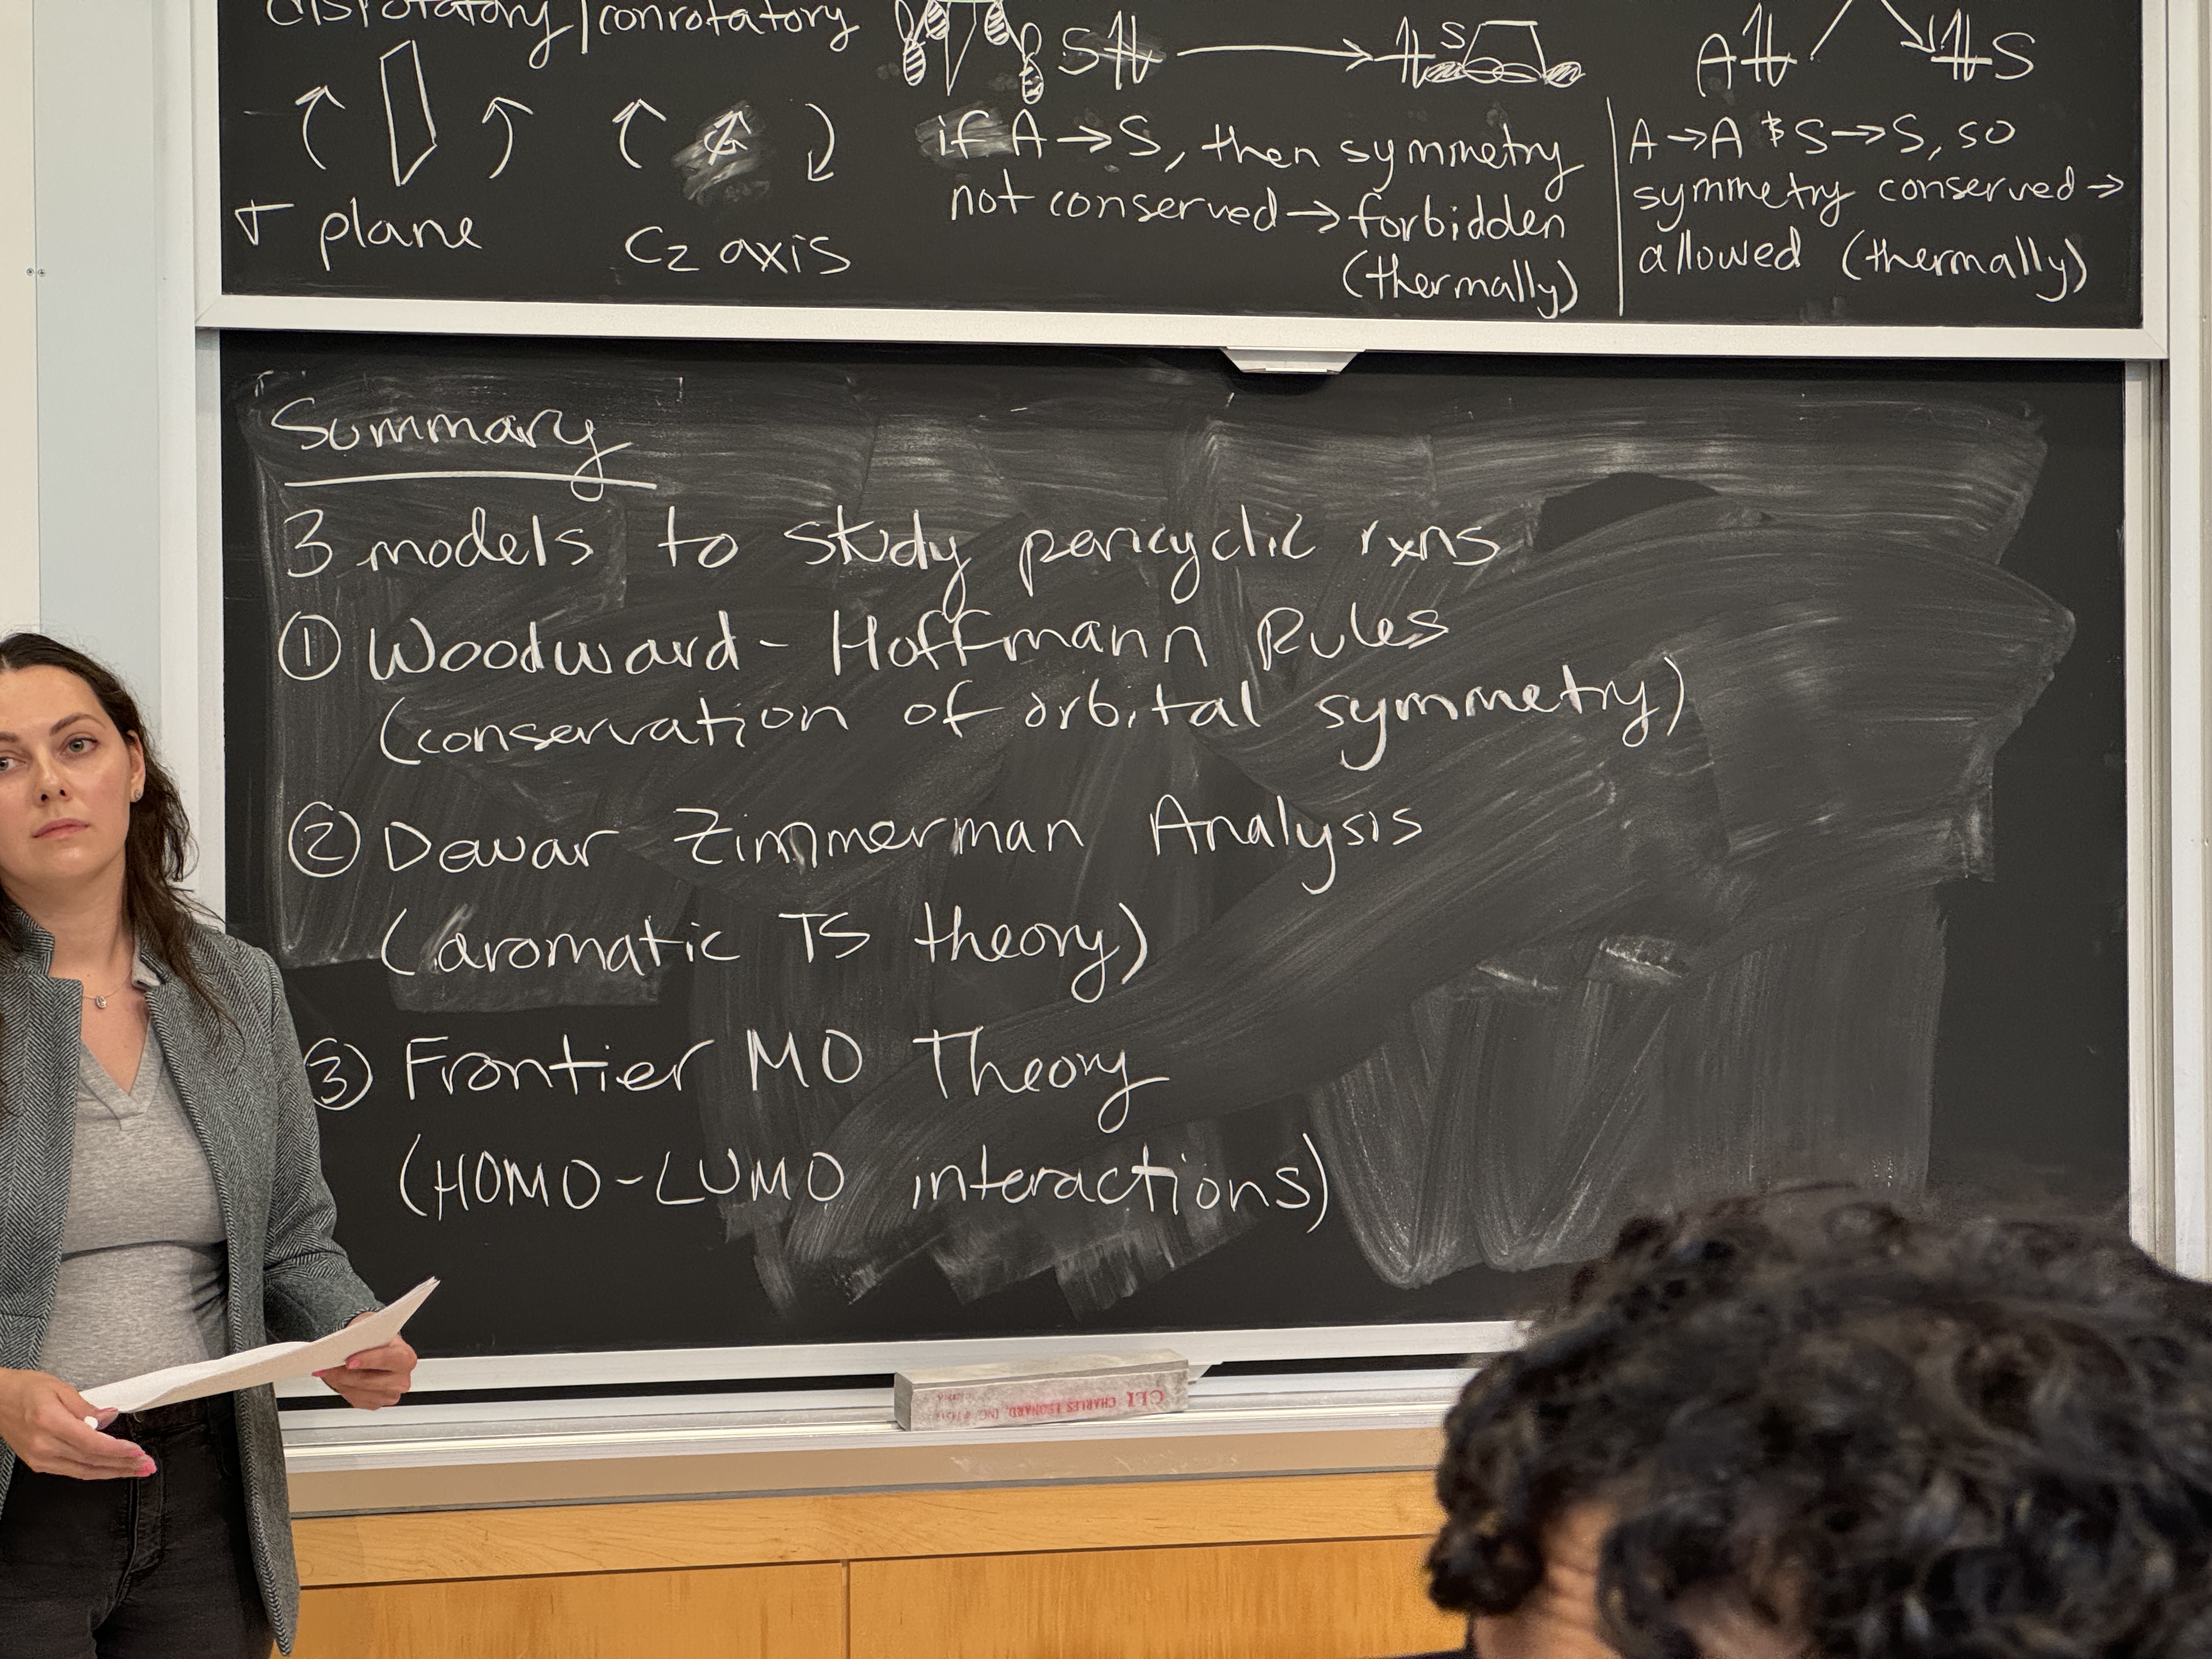 disrotatory/conrotatory
S
S
A
S
σ plane
C2 axis
if A → S, then symmetry
not conserved → forbidden
(thermally)
A → A & S → S, so
symmetry conserved →
allowed (thermally)
Summary
3 models to study pericyclic rxns
① Woodward - Hoffmann Rules
(conservation of orbital symmetry)
② Dewar Zimmerman Analysis
(aromatic TS theory)
③ Frontier MO Theory
(HOMO-LUMO interactions)
CLI CHARLES LEONARD, INC.